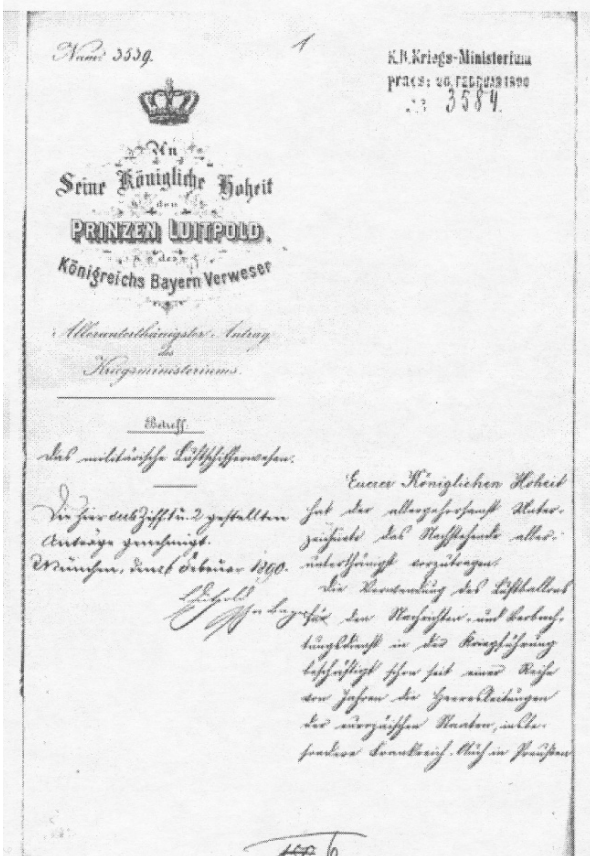 Num: 3539.
1
K.B. Kriegs-Ministerium
praes: 26. FEBRUAR 1890
№ 3584.
An
Seine Königliche Hoheit
den
PRINZEN LUITPOLD,
des
Königreichs Bayern Verweser
Allerunterthänigster Antrag
des
Kriegsministeriums.
Betreff:
Das militärische Luftschifferwesen.
Die hier aus Ziff. 1 u. 2 gestellten
Anträge genehmigt.
München, den Februar 1890.
Luitpold
Euerer Königlichen Hoheit
hat der allergehorsamst Unter-
zeichnete das Nachstehende aller-
unterthänigst vorzutragen:
Die Verwendung des Luftballons
für den Nachrichten- und Beobach-
tungsdienst in der Kriegführung
beschäftigt schon seit einer Reihe
von Jahren die Heeresleitungen
der europäischen Staaten, insbe-
sondere Frankreich. Auch in Preußen